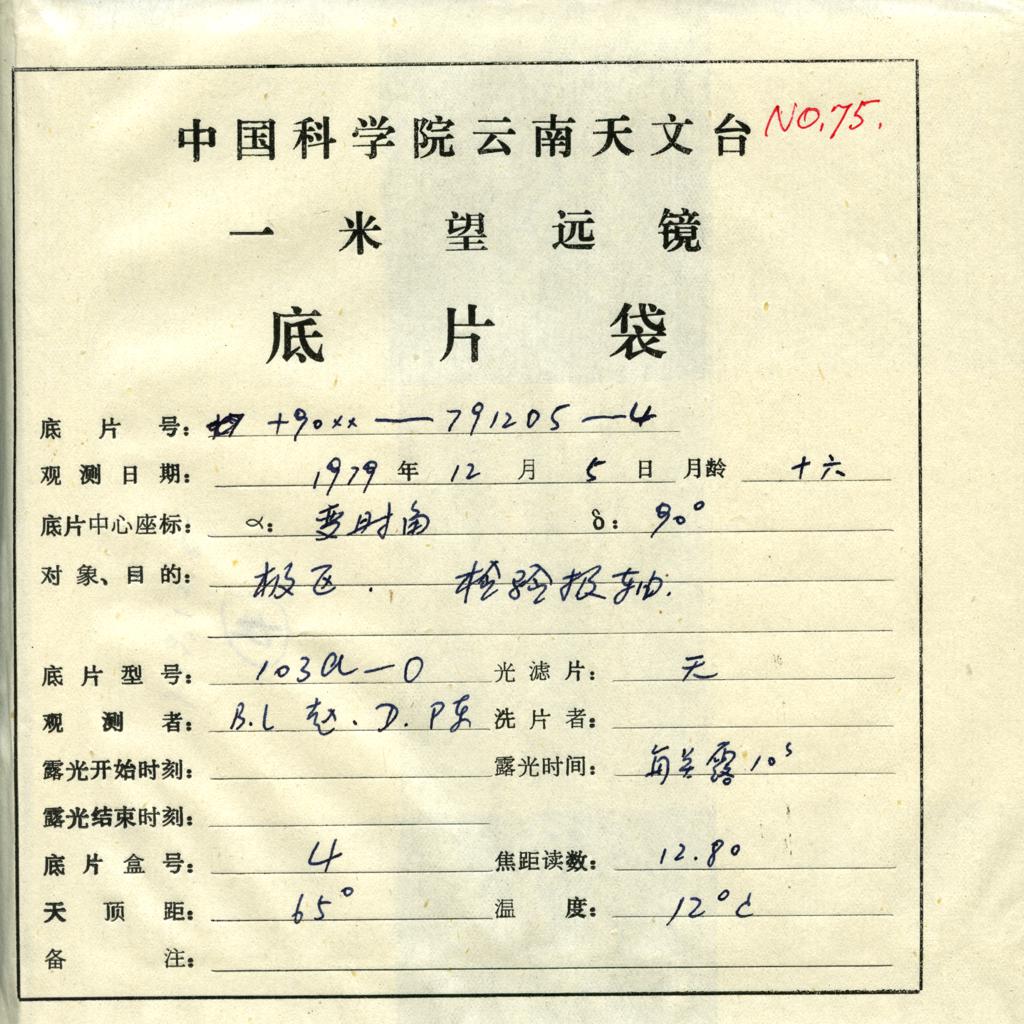 中国科学院云南天文台 NO.75.
一米望远镜
底片袋
底片号： +90xx — 791205 — 4
观测日期： 1979 年 12 月 5 日 月龄 十六
底片中心座标： α： 变时角 δ： 90°
对象、目的： 极区. 检验极轴.
底片型号： 103a-O 光滤片： 无
观测者： B.L 赵. D. 陈 洗片者：
露光开始时刻： 露光时间： 每 露 10s
露光结束时刻：
底片盒号： 4 焦距读数： 12.80
天顶距： 65° 温度： 12°C
备注：